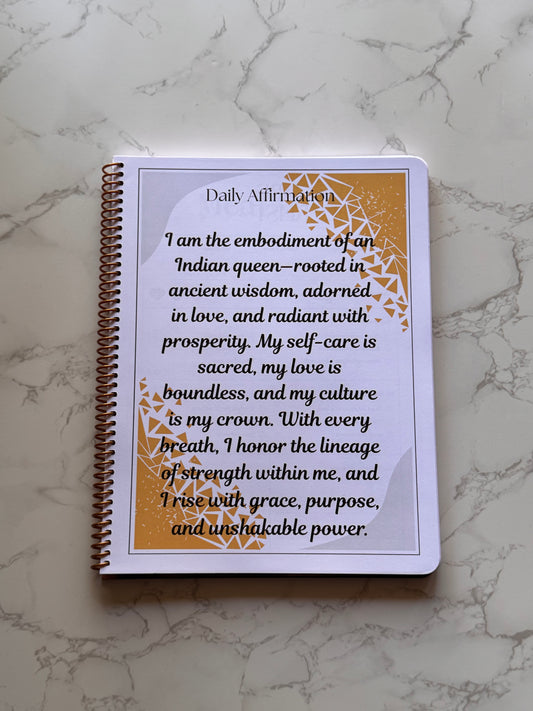 Daily Affirmation
I am the embodiment of an
Indian queen—rooted in
ancient wisdom, adorned
in love, and radiant with
prosperity. My self-care is
sacred, my love is
boundless, and my culture
is my crown. With every
breath, I honor the lineage
of strength within me, and
I rise with grace, purpose,
and unshakable power.